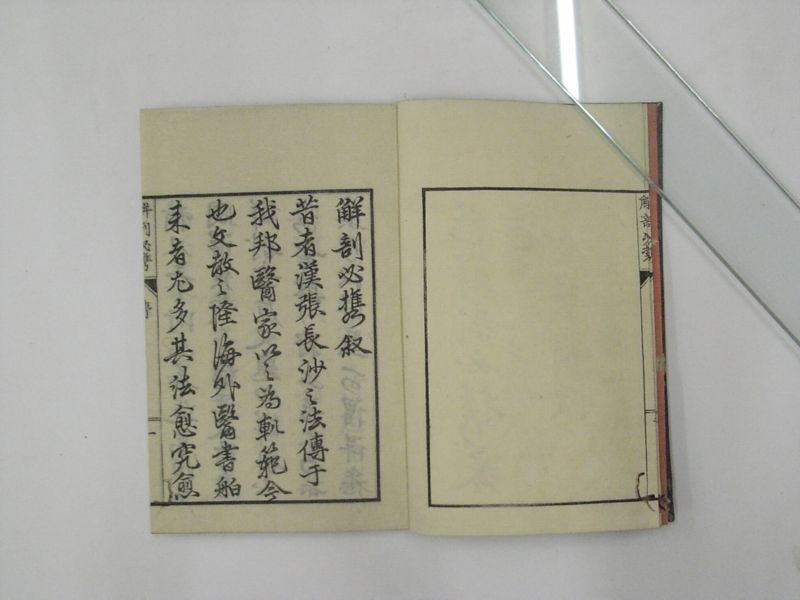 解剖必携
解剖必攜叙
昔者漢張長沙之法傳于
我邦醫家以之為軌範今
也文敎之隆海外醫書舶
来者尤多其法愈究愈
解剖必携